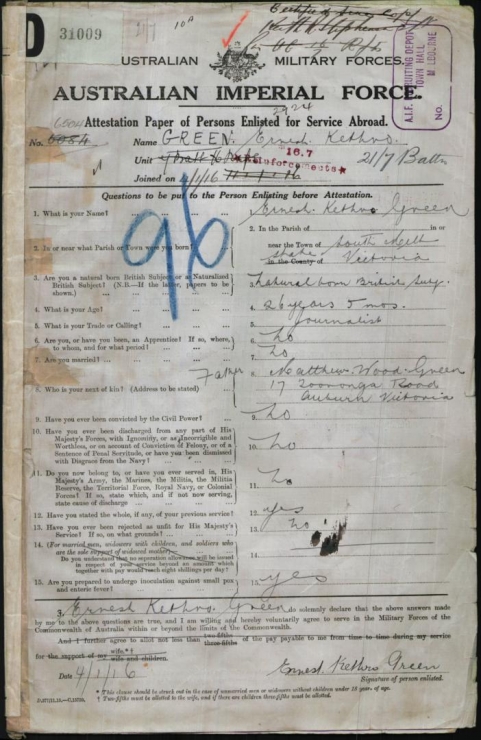 D 31009
10A
Certified True Copy
A.I.F. RECRUITING DEPOT
TOWN HALL
MELBOURNE
No.
AUSTRALIAN MILITARY FORCES.
AUSTRALIAN IMPERIAL FORCE.
Attestation Paper of Persons Enlisted for Service Abroad.
No. Name GREEN. Ernest Kethro.
Unit 16.7 Reinforcements 21/7 Battn
Joined on 4/1/16
96
Questions to be put to the Person Enlisting before Attestation.
1. What is your Name? ... ... 1. Ernest Kethro Green
2. In or near what Parish or Town were you born? 2. In the Parish of in or
near the Town of South Melb
in the County of State Victoria
3. Are you a natural born British Subject or a Naturalized 3. Natural born British Subj.
British Subject? (N.B.—If the latter, papers to be
shown.)
4. What is your Age? 4. 26 years 5 mos.
5. What is your Trade or Calling? 5. journalist
6. Are you, or have you been, an Apprentice? If so, where, 6. No
to whom, and for what period?
7. Are you married? 7. No
8. Who is your next of kin? (Address to be stated) Father 8. Matthew Wood Green
17 Road
Auburn Victoria
9. Have you ever been convicted by the Civil Power? 9. No
10. Have you ever been discharged from any part of His 10. No
Majesty's Forces, with Ignominy, or as Incorrigible and
Worthless, or on account of Conviction of Felony, or of a
Sentence of Penal Servitude, or have you been dismissed
with Disgrace from the Navy?
11. Do you now belong to, or have you ever served in, His 11. No
Majesty's Army, the Marines, the Militia, the Militia
Reserve, the Territorial Force, Royal Navy, or Colonial
Forces? If so, state which, and if not now serving,
state cause of discharge
12. Have you stated the whole, if any, of your previous service? 12. yes
13. Have you ever been rejected as unfit for His Majesty's 13. No
Service? If so, on what grounds?
14. (For married men, widowers with children, and soldiers who 14.
are the sole support of widowed mother)—
Do you understand that no separation allowance will be issued
in respect of your service beyond an amount which
together with pay would reach eight shillings per day?
15. Are you prepared to undergo inoculation against small pox 15. yes
and enteric fever?
I, Ernest Kethro Green do solemnly declare that the above answers made
by me to the above questions are true, and I am willing and hereby voluntarily agree to serve in the Military Forces of the
Commonwealth of Australia within or beyond the limits of the Commonwealth.
And I further agree to allot not less than two-fifths three-fifths of the pay payable to me from time to time during my service
for the support of my wife.*† wife and children.
Date 4/1/16 Ernest Kethro Green
Signature of person enlisted.
* This clause should be struck out in the case of unmarried men or widowers without children under 18 years of age.
† Two-fifths must be allotted to the wife, and if there are children three-fifths must be allotted.